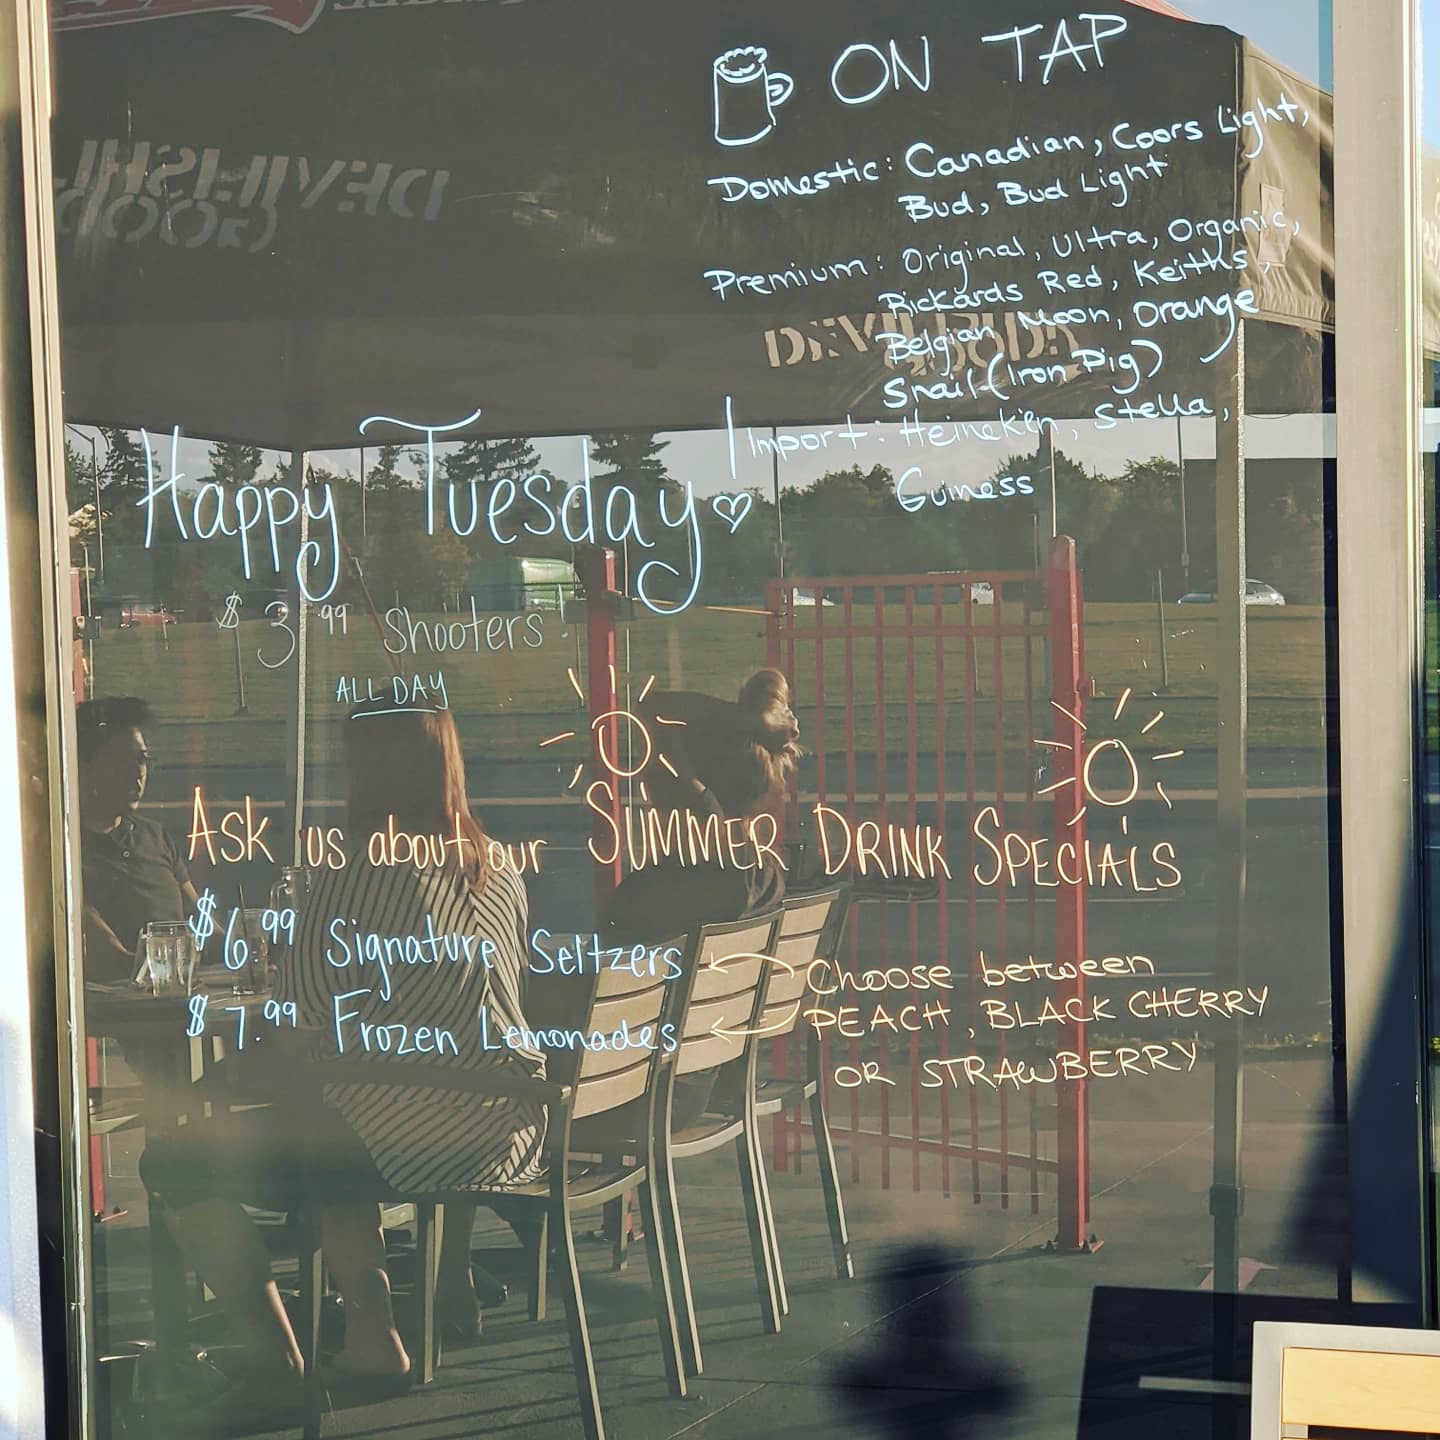 ON TAP
Domestic: Canadian, Coors Light,
Bud, Bud Light
Premium: Original, Ultra, Organic,
Rickards Red, Keiths,
Belgian Moon, Orange
Snail (Iron Pig)
Import: Heineken, Stella,
Guiness
Happy Tuesday!
$3.99 Shooters!
ALL DAY
Ask us about our SUMMER DRINK SPECIALS
$6.99 Signature Seltzers
$7.99 Frozen Lemonades
Choose between
PEACH, BLACK CHERRY
OR STRAWBERRY
DEVILISHLY
GOOD